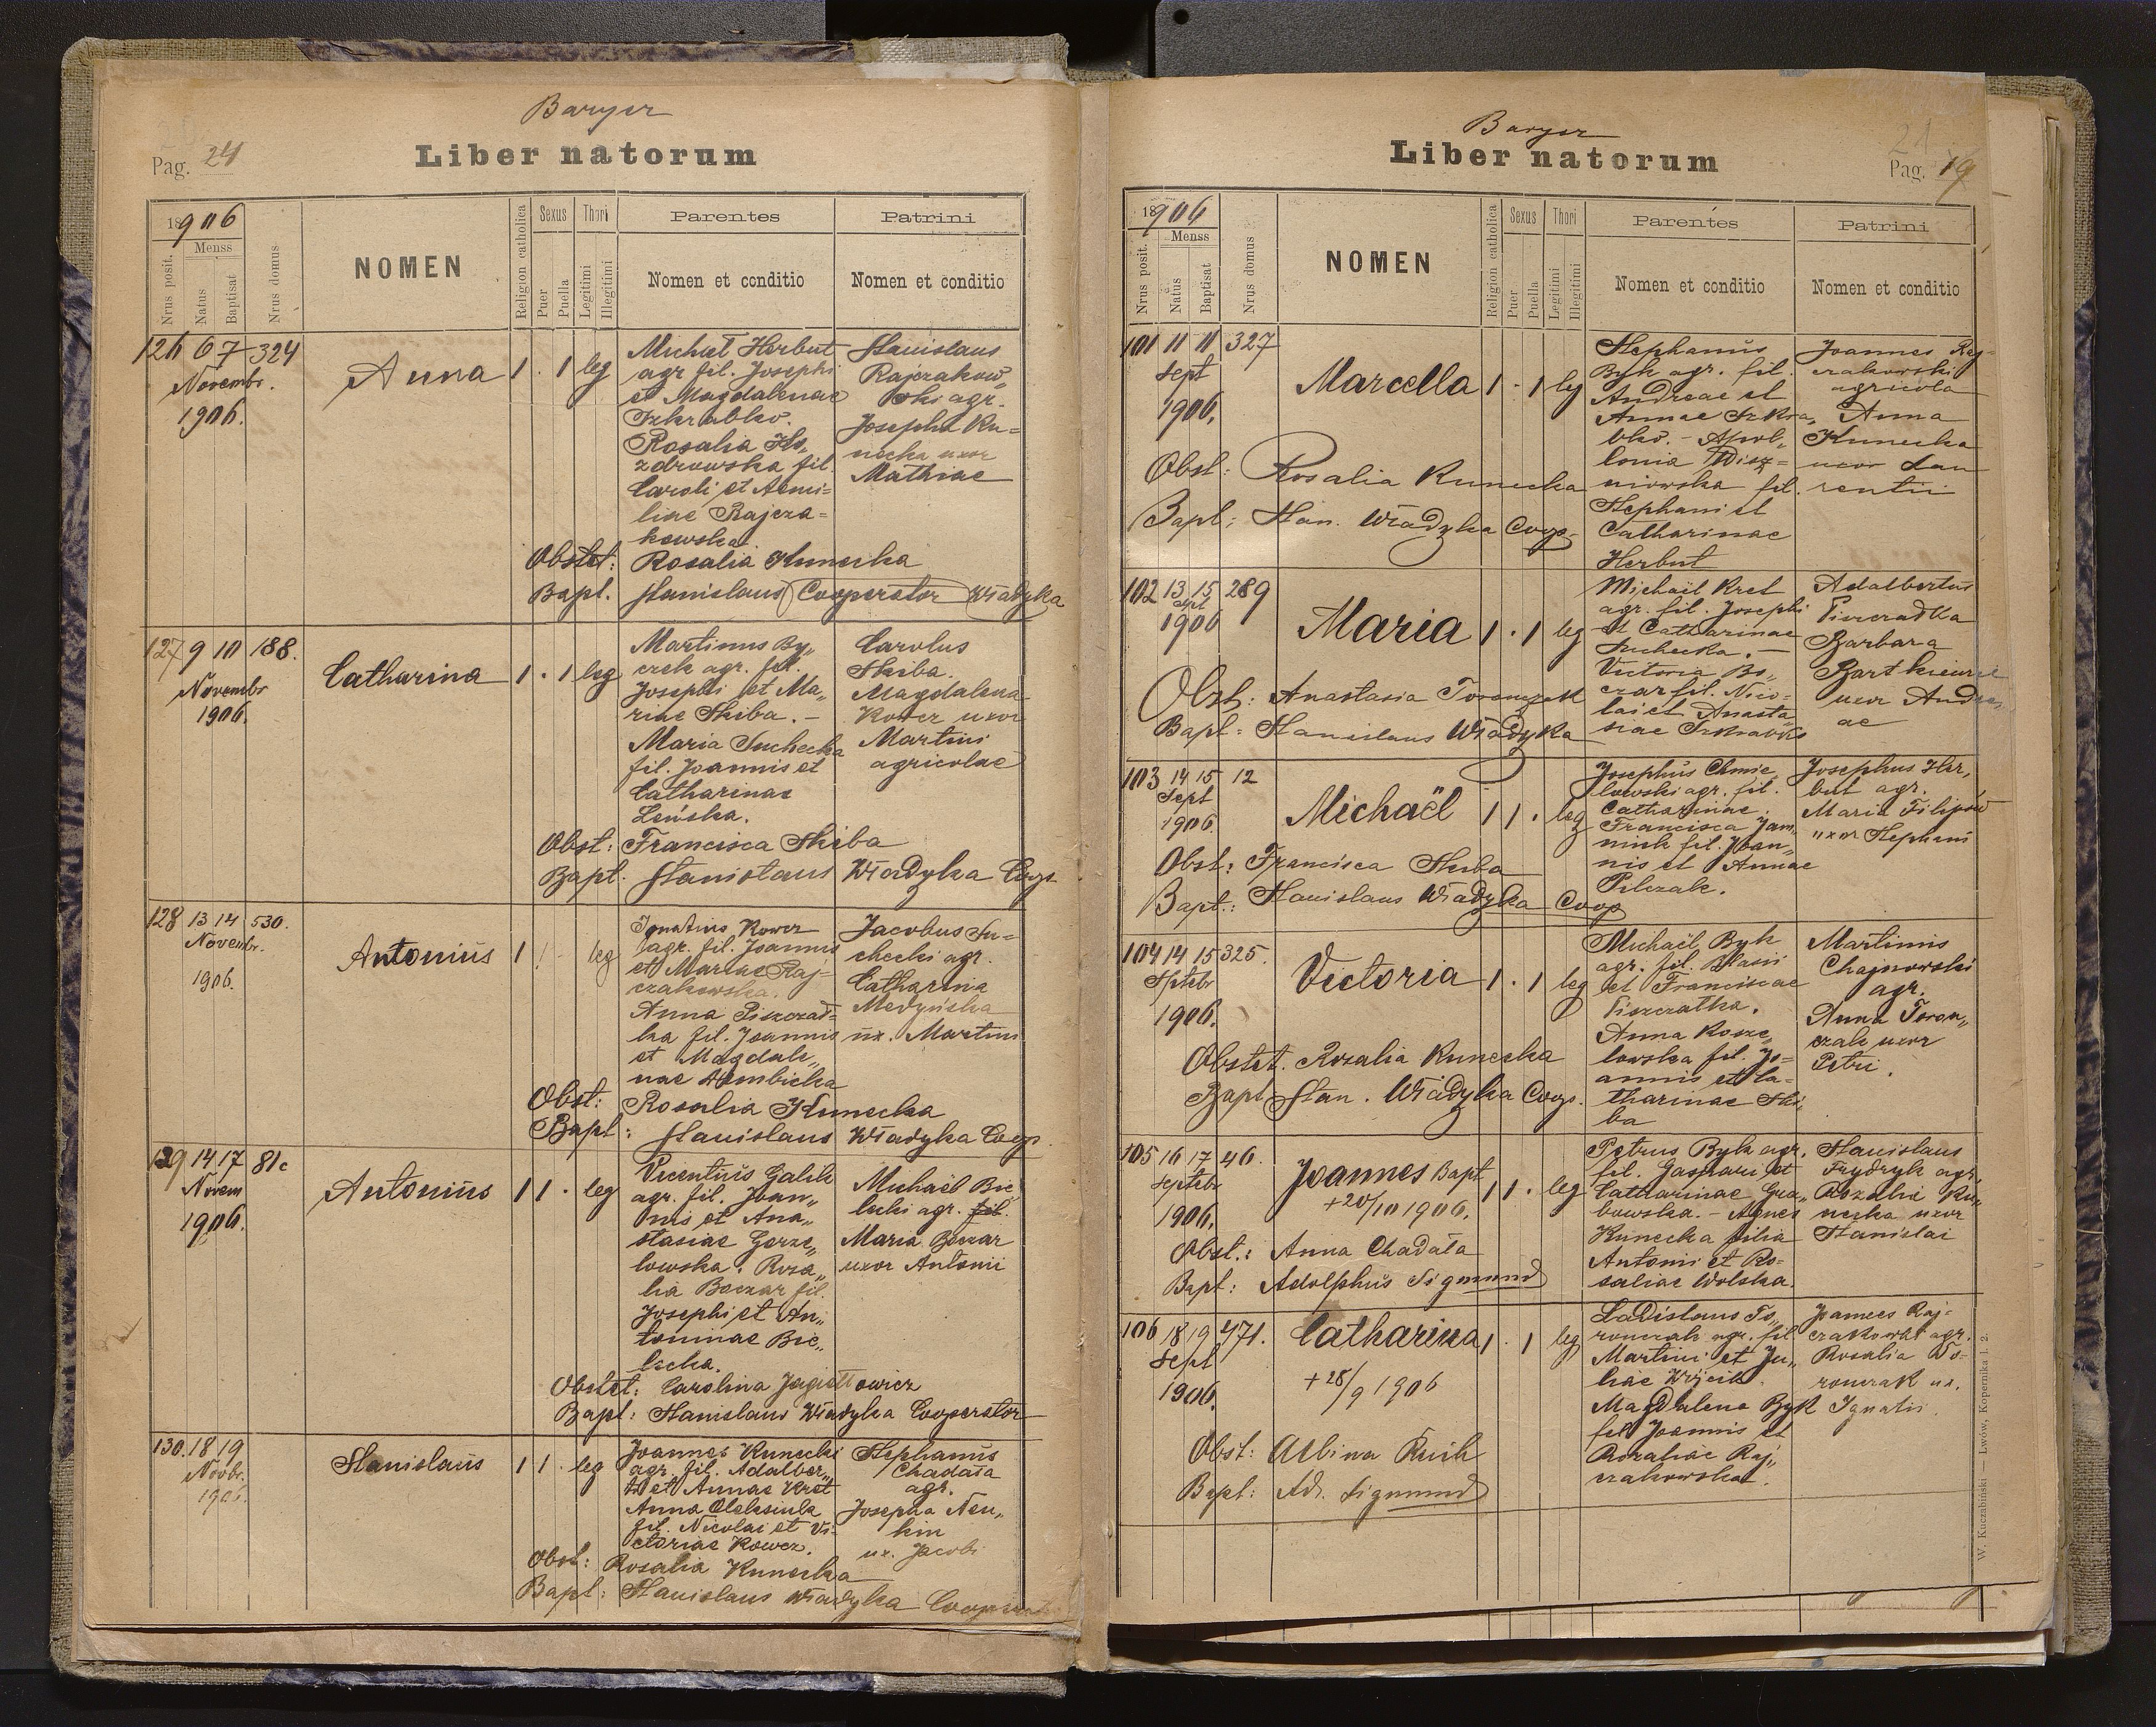 Baryer
Pag. 24
Liber natorum
1906
Menss
Nrus posit.
Natus
Baptisat
Nrus domus
NOMEN
Religion catholica
Sexus
Puer
Puella
Thori
Legitimi
Illegitimi
Parentes
Nomen et conditio
Patrini
Nomen et conditio
126 6 7 324
Novembr.
1906.
Anna
1 . 1 leg
Michael Herbut
agr fil. Josephi
et Magdalenae
Szkrabko.
Rosalia
zdrowska fil.
Caroli et Aemi=
liae Rajcza=
kowska
Stanislaus
Rajczakow„
ski agr.
Josepha Ku=
necka uxor
Mathiae
Obstet: Rosalia Kunecka
Bapt. Stanislaus Cooperator Władyka
127 9 10 188.
Novembr
1906.
Catharina
1 . 1 leg
Martinus By„
czek agr. fil.
Josephi et Ma„
riae Skiba. –
Maria Suchecka
fil. Joannis et
Catharinae
Leńska.
Carolus
Skiba.
Magdalena
Kowcz uxor
Martini
agricolae
Obst: Francisca Skiba
Bapt. Stanislaus Władyka Coop
128 13 14 530.
Novembr.
1906.
Antonius
1 1 - leg
Ignatius Kowcz
agr. fil. Joannis
et Mariae Raj=
czakowska.
Anna Piszczad=
ka fil. Joannis
et Magdale„
nae Dembicka
Jacobus Su=
checki agr.
Catharina
Medyńska
ux. Martini
Obst: Rosalia Kunecka
Bapt: Stanislaus Władyka Coop.
129 14 17 81c
Novem
1906.
Antonius
1 1 . leg
Vicentius Galik
agr. fil. Joan„
nis et Ana„
stasiae Gorze„
lowska. Rosa„
lia Boczar fil.
Josephi et An„
toninae Bie„
lecka.
Michael Bie
lecki agr. fil.
Maria Boczar
uxor Antonii
Obstet: Carolina Jagiełłowicz
Bapt: Stanislaus Władyka Cooperator
130. 18 19
Novbr.
1906.
Stanislaus
1 1 . leg
Joannes Kunecki
agr. fil. Adalber„
ti et Annae Kret
Anna Oleksiuka
fil. Nicolai et Vi=
ctoriae Kowcz.
Stephanus
Chadała
agr.
Josepha Neu„
kin
ux. Jacobi
Obst: Rosalia Kunecka
Bapt: Stanislaus Władyka Cooperator
Baryer
Liber natorum
21
Pag. 19
1906
Menss
Nrus posit.
Natus
Baptisat
Nrus domus
NOMEN
Religion catholica
Sexus
Puer
Puella
Thori
Legitimi
Illegitimi
Parentes
Nomen et conditio
Patrini
Nomen et conditio
101 11 11 327
Sept
1906.
Marcella
1 . 1 leg
Stephanus
Byk agr. fil.
Andreae et
Annae Szkra„
bko. – Apol„
lonia Wisz=
niowska fil.
Stephani et
Catharinae
Herbut
Joannes Raj=
czakowski
agricola
Anna
Kunecka
uxor Lau
rentii
Obst: Rosalia Kunecka
Bapt: Stan. Władyka Coop.
102 13 15 289
Sept
1906
Maria
1 . 1 leg
Michaël Kret
agr. fil. Josephi
et Catharinae
Suchecka. –
Victoria Bo„
czar fil. Nico„
lai et Anasta
siae Szkrabko
Adalbertus
Piszczadka
Barbara
uxor Andre„
ae
Obst: Anastasia Toronczak
Bapt: Stanislaus Władyka
103 14 15 12
Sept
1906.
Michaël
1 1 . leg
Josephus Chmie„
lowski agr. fil.
Catharinae.
Francisca Jam„
niuk fil. Joan„
nis et Annae
Pilczak.
Josephus Her„
but agr.
Maria Filipow
uxor Stephani
Obst: Francisca Skiba
Bapt.: Stanislaus Władyka Coop
104 14 15 325.
Septebr
1906.
Victoria
1 . 1 leg
Michaël Byk
agr. fil. Blasii
et Franciscae
Piszczatka.
Anna Kosze„
lowska fil. Jo=
annis et Ca=
tharinae Ski„
ba
Martinus
Chajnowski
agr.
Anna Toron„
czak uxor
Petri.
Obstet. Rozalia Kunecka
Bapt Stan. Władyka Coop.
105 16 17 46.
Septebr
1906.
Joannes Bapt
+ 20/10 1906.
1 1 . leg
Petrus Byk agr.
fil. Gaspari et
Catharinae Gra„
bowska. – Agnes
Kunecka filia
Antonii et Ro=
saliae Wolska.
Stanislaus
Frydryk agr.
Rozalia Ku„
necka uxor
Stanislai
Obst.: Anna Chadała
Bapt: Adolphus Sigmund
106 18 19 471.
Sept
1906.
Catharina
+ 28/9 1906
1 . 1 leg
Ladislaus To„
ronczak agr. fil
Martini et Ju„
liae Wójcik.
Magdalena Byk
fil Joannis et
Rozaliae Raj„
czakowska.
Joannes Raj=
czakowski agr.
Rosalia To=
ronczak ux.
Ignatii.
Obst: Albina
Bapt: Ad. Sigmund
W. Kuczabiński — Lwów, Kopernika l. 2.